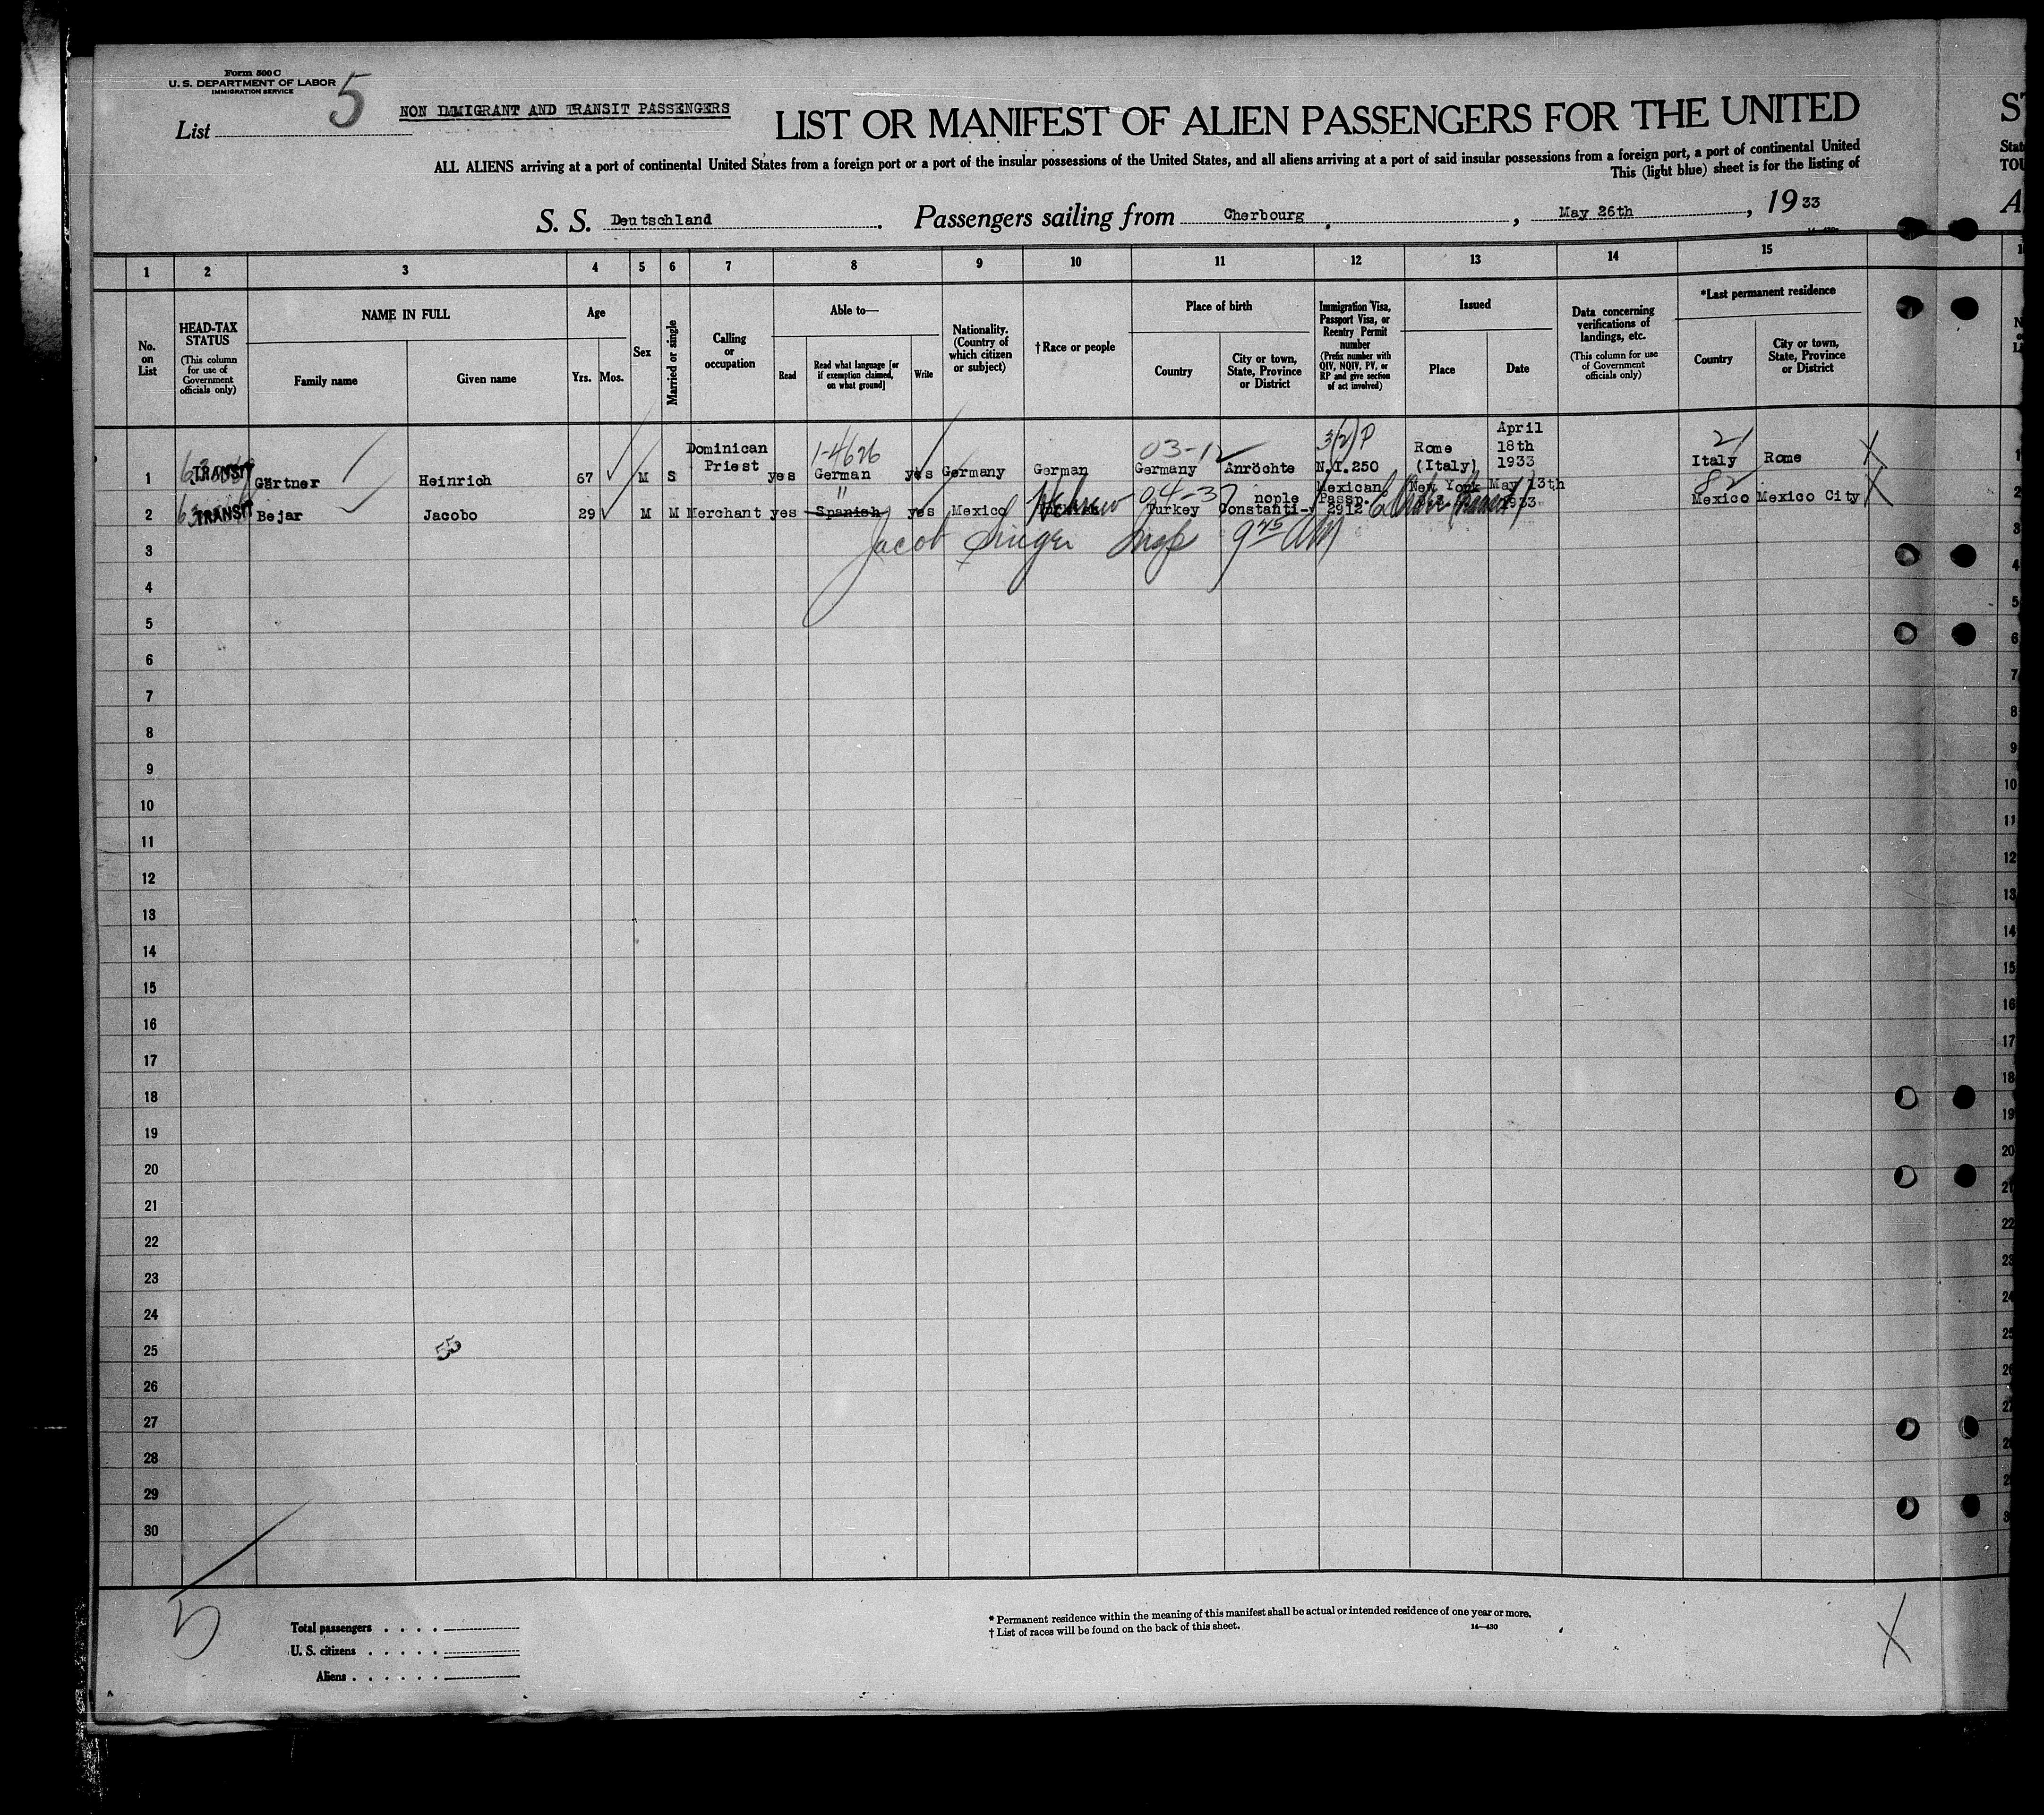 Form 500 C
U. S. DEPARTMENT OF LABOR
IMMIGRATION SERVICE
List 5
NON IMMIGRANT AND TRANSIT PASSENGERS
LIST OR MANIFEST OF ALIEN PASSENGERS FOR THE UNITED
ALL ALIENS arriving at a port of continental United States from a foreign port or a port of the insular possessions of the United States, and all aliens arriving at a port of said insular possessions from a foreign port, a port of continental United
This (light blue) sheet is for the listing of
S. S. Deutschland. Passengers sailing from Cherbourg, May 26th, 1933
1 2 3 4 5 6 7 8 9 10 11 12 13 14 15
No. on List
HEAD-TAX STATUS
(This column for use of Government officials only)
NAME IN FULL
Family name
Given name
Age
Yrs. Mos.
Sex
Married or single
Calling or occupation
Able to—
Read
Read what language [or if exemption claimed, on what ground]
Write
Nationality. (Country of which citizen or subject)
† Race or people
Place of birth
Country
City or town, State, Province or District
Immigration Visa, Passport Visa, or Reentry Permit number
(Prefix number with QIV, NQIV, PV, or RP and give section of act involved)
Issued
Place
Date
Data concerning verifications of landings, etc.
(This column for use of Government officials only)
*Last permanent residence
Country
City or town, State, Province or District
1 TRANSIT Gärtner Heinrich 67 M S Dominican Priest yes 1-4626 German yes Germany German 03-12 Germany Anröchte 3(2)P N.I.250 Rome (Italy) April 18th 1933 21 Italy Rome X
2 TRANSIT Bejar Jacobo 29 M M Merchant yes " Spanish yes Mexico Hebrew 04-37 Turkey Constantinople Mexican Passp. 2912 New York May 13th 1933 82 Mexico Mexico City X
Jacob Singer Insp 9 45 AM
3
4
5
6
7
8
9
10
11
12
13
14
15
16
17
18
19
20
21
22
23
24
25
55
26
27
28
29
30
5
Total passengers
U. S. citizens
Aliens
* Permanent residence within the meaning of this manifest shall be actual or intended residence of one year or more.
† List of races will be found on the back of this sheet.
14—430
X